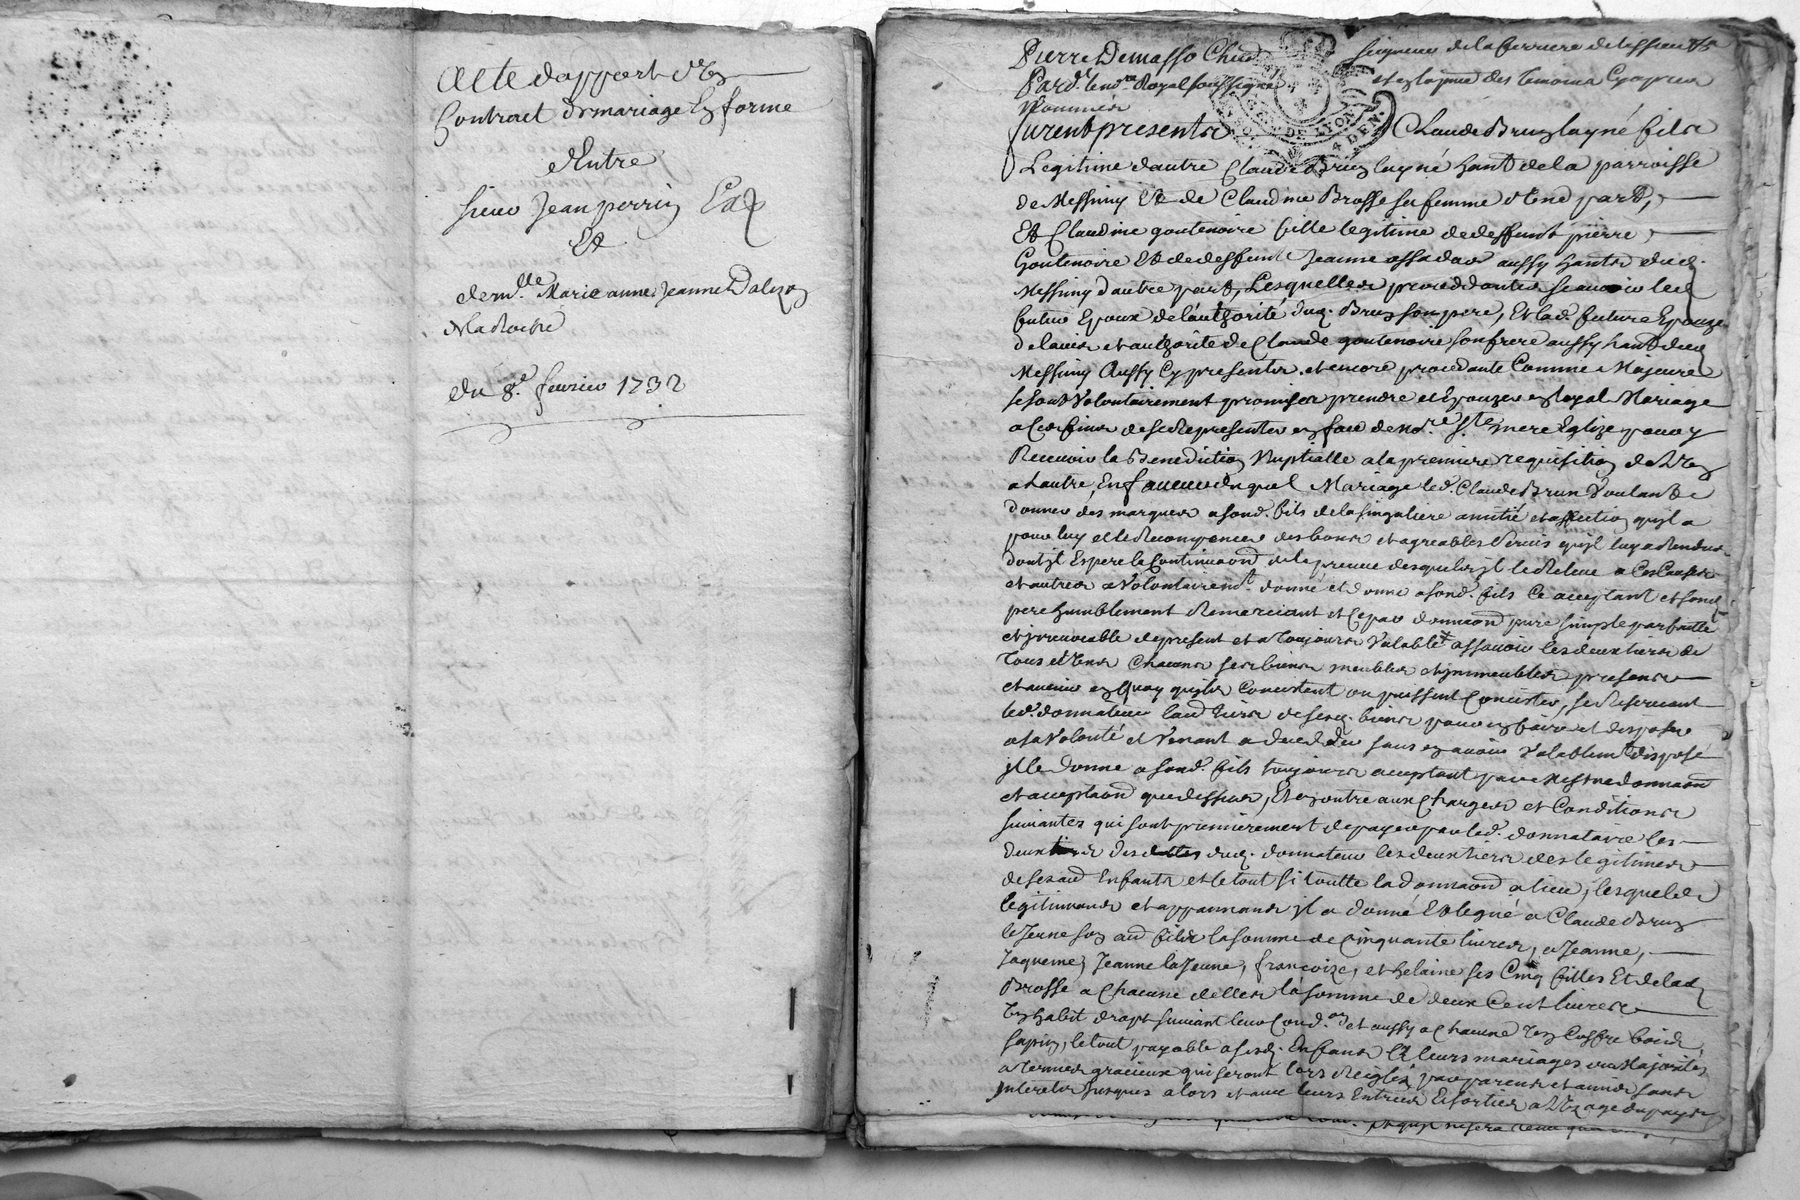 Acte dapport d'un
Contract de mariage en forme
Entre
sieur Jean perrin
Et
demlle Marie anne Jeanne Dalezon
Maroche
du 8e fevrier 1732
Pierre Demasso Chev seigneur de la ferriere de lissieu
Pard. le nore Royal soussigné et en la pnce des temoins cy apres
Nommés
furent presents Claude Brun layné fils
Legitime d'autre Claude Brun layné hant de la parroisse
de Messimy Et de Claudine Brosse sa femme d'une part,
Et Claudine goutenoire fille legitime de deffunt pierre
Goutenoire Et de deffunte Jeanne assadas aussy hants dud.
Messimy d'autre part, Lesquelles proceddantes scauoir led
futur Epoux de l'authorité dud. Brun son pere, Et lad. future Epouze
de lauis et authorité de Claude goutenoire son frere aussy hant dud
Messimy Aussy Cy presents et encore procedante Comme Majeure
se sont Volontairement promis prendre et Epouzer en loyal Mariage
a Ces fins de se Representer en face de nore ste mere Eglize pour y
Receuoir la Benediction Nuptialle a la premiere requisition de l'un
a Lautre, En faueur duquel Mariage led. Claude Brun Voulant
donner des marques a sond. fils de la singuliere amitié et affection quil a
pour luy et le Recompencer des bons et agreables seruices quil luy a Rendus
dont il Espere la Continuaon de la preuue desquels il le Releue a Ces Causes
et autres a Volontairemt. donné et donne a sond. fils Ce acceptant et sond
pere humblement Remerciant et Ce par donnaon pure simple parfaite
et irreuocable de present et a Toujours Valable assauoir les deux tiers de
Tous et Uns Chacuns ses biens meubles et immeubles presents
et auenir en Quoy quils Concistent ou puissent Concister, se Reseruant
led. donnateur laud tiers de sesd. biens pour en faire et disposer
a sa Volonté et Venant a deceder sans en auoir Valablemt disposé
il le donne a sond. fils toujours acceptant par mesme donnaon
et acceptaon que dessus, Et en outre aux Charges et Conditions
suiuantes qui sont premierement de payer par led. donnataire les
deux tiers des dettes dud. donnateur les deux tiers des legitimes
de ses aud Enfants et le tout si toutte la donnaon a lieu, lesquelles
legitimant et appannant il a donné Et legué a Claude Brun
le Jeune son aud fils la somme de Cinquante liures, a Jeanne,
Jaqueme, Jeanne la Jeune, francoize, et helaine ses Cinq filles Et de lad
Brosse a Chacune d'elles la somme de deux Cent liures
Un habit drapt suiuant leur Condon et aussy a Chacune Un Coffre bois
sapin, le tout payable a sesd. Enfans a leurs mariages ou Majorités
a termes gracieux qui seront lors Reglés par parens et amis sans
Interets Jusques alors et auec leurs Entrées Et sorties a Uzage du pays